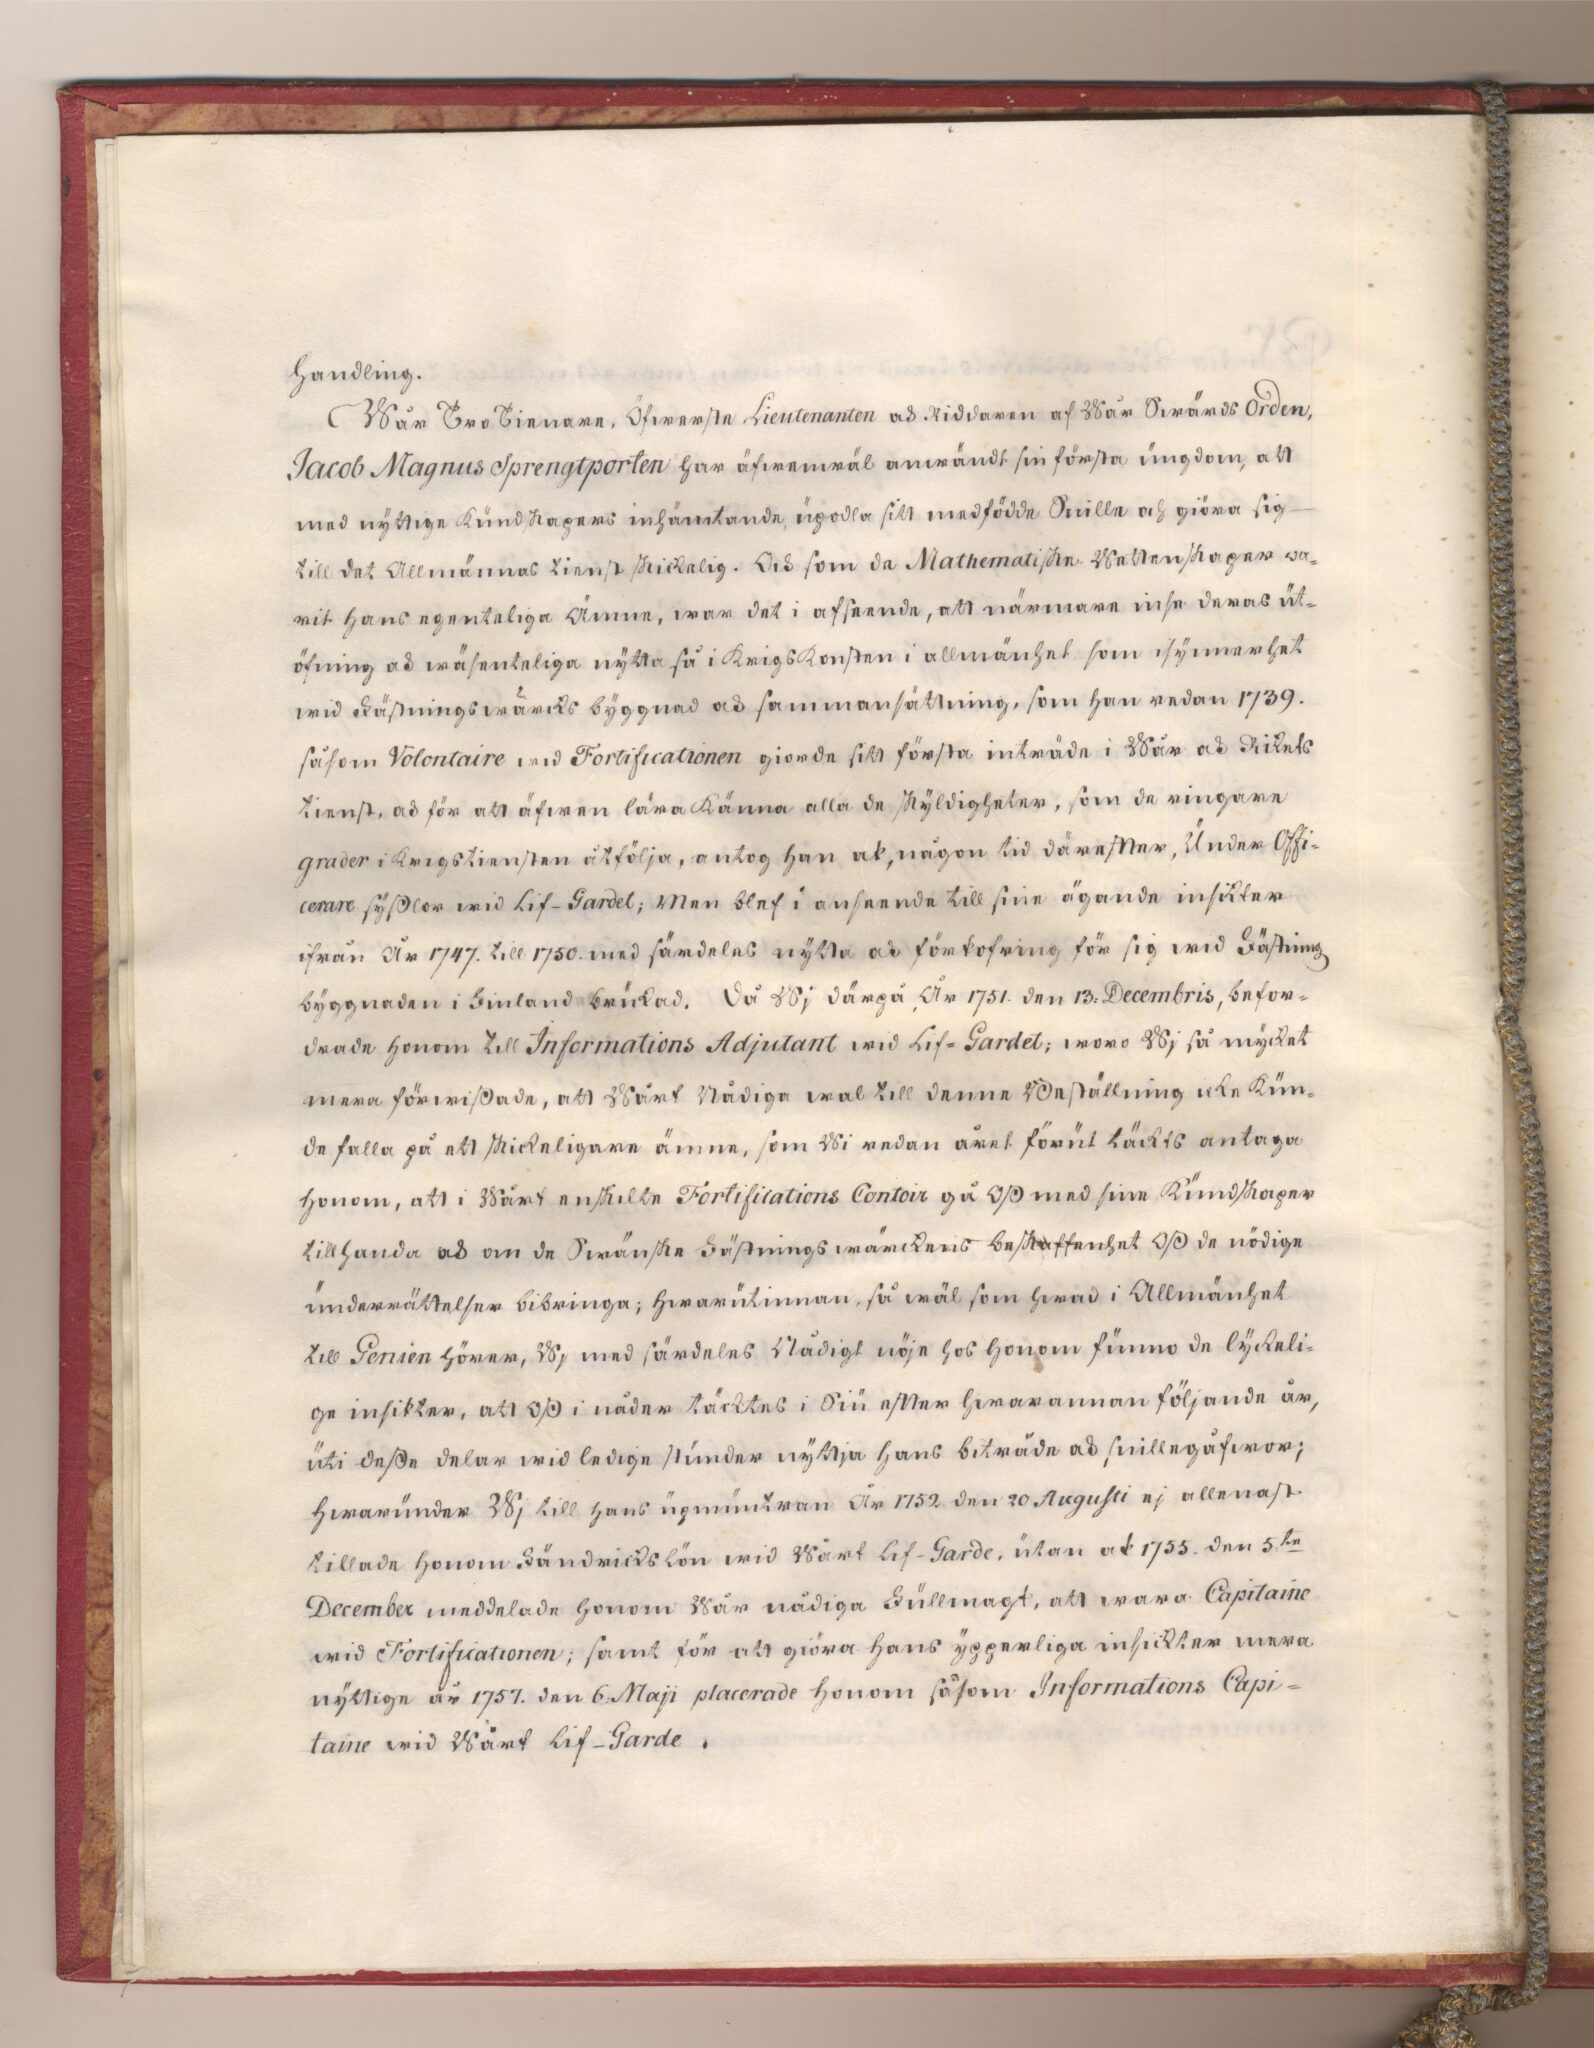 handling.
Wår Tro Tienare, Öfwerste Lieutenanten och Riddaren af Wår Swärds Orden,
Jacob Magnus Sprengtporten har äfwenwäl anwändt sin första ungdom, att
med nyttige Kundskapers inhämtande, upodla sitt medfödde Snille och giöra sig
till det Allmännas tienst skickelig. Och som de Mathematiske Wettenskaper wa-
rit hans egenteliga Ämne, war det i afseende, att närmare inse deras ut-
öfning och wäsenteliga nytta så i KrigsKonsten i allmänhet som isynnerhet
wid Fästningswärcks byggnad och sammansättning, som han redan 1739.
såsom Volontaire wid Fortificationen giorde sitt första inträde i Wår och Rikets
tienst, och för att äfwen lära Känna alla de skyldigheter, som de ringare
grader i Krigstiensten åtfölja, antog han ock, någon tid därefter, Under Offi-
cerare syßlor wid Lif-Gardet; Men blef i anseende till sine ägande insikter
ifrån År 1747. till 1750. med särdeles nytta och förkofring för sig wid Fästning
byggnaden i Finland brukad. Då Wj därpå År 1751. den 13. Decembris, befor-
drade honom till Informations Adjutant wid Lif-Gardet; woro Wj så mycket
mera förwißade, att Wårt Nådiga wal till denne Beställning icke Kun-
de falla på ett skickeligare ämne, som Wi redan året förut täckts antaga
honom, att i Wårt enskilte Fortifications Contoir gå Oß med sine Kundskaper
tillhanda och om de Swänske Fästningswärckens beskaffenhet Oß de nödige
underrättelser bibringa; hwarutinnan, så wäl som hwad i Allmänhet
till Genien hörer, Wj med särdeles Nådigt nöje hos honom funno de lyckeli-
ge insikter, att Oß i nåder täcktes i Siu efter hwarannan följande år,
uti deße delar wid ledige stunder nyttja hans biträde och snillegåfwor;
hwarunder Wj till hans upmuntran År 1752. den 20 Augusti ej allenast
tillade honom Fändrickslön wid Wårt Lif-Garde, utan ock 1755. den 5.te
December meddelade honom Wår nådiga Fullmagt, att wara Capitaine
wid Fortificationen; samt för att giöra hans ypperliga insickter mera
nyttige år 1757. den 6. Maji placerade honom såsom Informations Capi-
taine wid Wårt Lif-Garde.